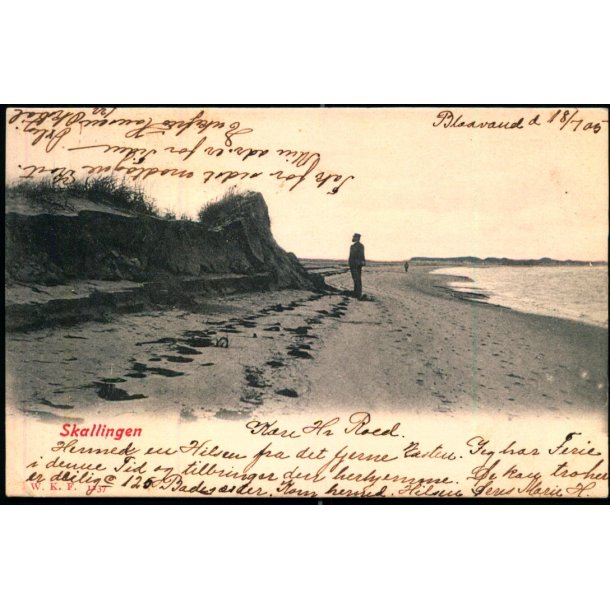 Blaavand d 18/7 05
Tak for sidst modtagne Kort.
Min adr. er for Tiden
Enkefru Hansen
Skallingen
Kære Hr Roed.
Hermed en Hilsen fra det fjerne Vesten. Jeg har Ferie
i denne Tid og tilbringer den herhjemme. De kan tro her
er deilig 125 Badegæster. Kom hermed. Hilsen Deres Marie H.
W. K. F. 1137